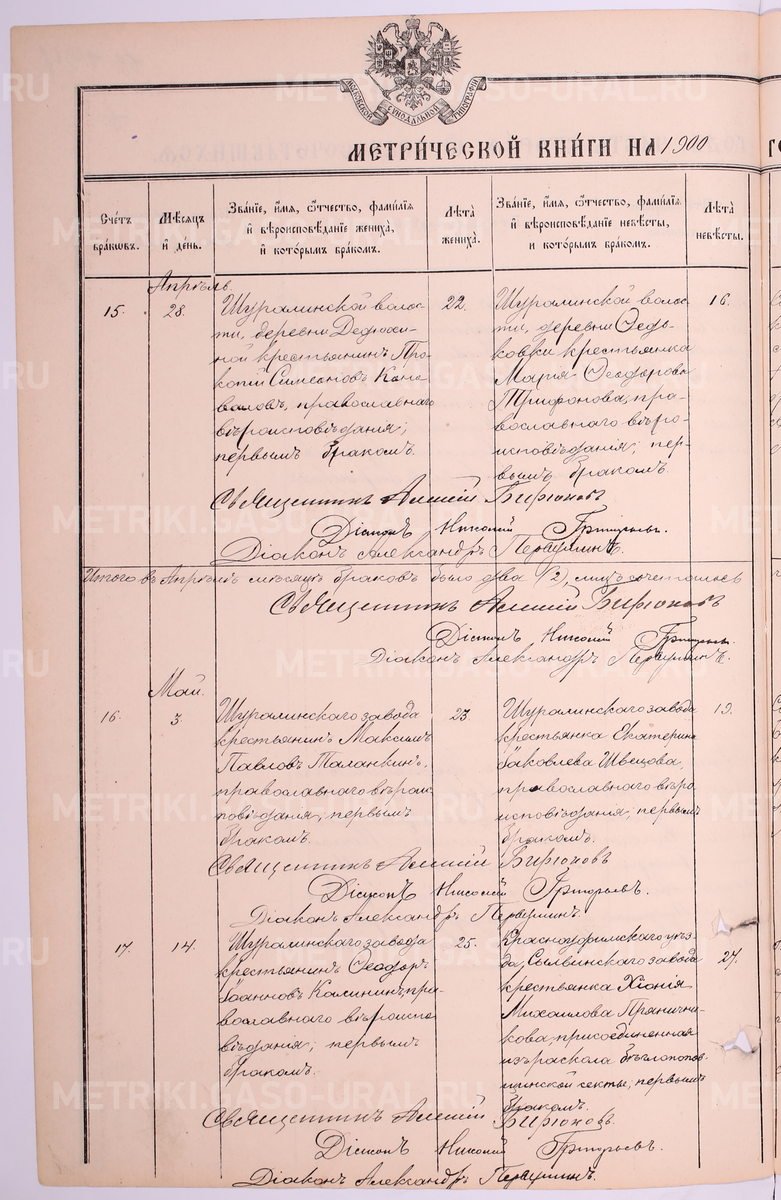 МОСКОВСКОЙ СѴНОДАЛЬНОЙ ТИПОГРАФІИ
МЕТРИ́ЧЕСКОЙ КНИ́ГИ НА 1900
Сче́тъ бра́ковъ.
Мѣ́сяцъ и҆ де́нь.
Зва́нїе, и҆́мѧ, ѻ҆́тчество, фами́лїѧ и҆ вѣроисповѣ́данїе жениха̀, и҆ кото́рымъ бра́комъ.
Лѣ́та жениха̀.
Зва́нїе, и҆́мѧ, ѻ҆́тчество, фами́лїѧ и҆ вѣроисповѣ́данїе невѣ́сты, и҆ кото́рымъ бра́комъ.
Лѣ́та невѣ́сты.
Апрѣль.
15.
28.
Шуралинской волос-
ти, деревни
ной крестьянинъ Про-
копій Симеоновъ Коно-
валовъ, православнаго
вѣроисповѣданія;
первымъ бракомъ.
22.
Шуралинской волос-
ти, деревни Ѳедь-
ковки крестьянка
Марія Ѳеодорова
Трифонова, пра-
вославнаго вѣро-
исповѣданія; пер-
вымъ бракомъ.
16.
Священникъ Алексій Бирюковъ
Діаконъ Николай Григорьевъ.
Діаконъ Александръ Первушинъ.
Итого въ Апрѣлѣ мѣсяцѣ браковъ было два (2), лицъ сочеталось
Священникъ Алексій Бирюковъ
Діаконъ Николай Григорьевъ.
Діаконъ Александръ Первушинъ.
Май.
16.
3.
Шуралинскаго завода
крестьянинъ Максимъ
Павловъ Таланкинъ,
православнаго вѣроис-
повѣданія; первымъ
бракомъ.
23.
Шуралинскаго завода
крестьянка Екатерина
Іаковлева Швецова,
православнаго вѣро-
исповѣданія; первымъ
бракомъ.
19.
Священникъ Алексій Бирюковъ
Діаконъ Николай Григорьевъ.
Діаконъ Александръ Первушинъ
17.
14.
Шуралинскаго завода
крестьянинъ Ѳеодоръ
Іоанновъ Калининъ, пра-
вославнаго вѣроиспо-
вѣданія; первымъ
бракомъ.
25.
Красноуфимскаго уѣз-
да, Сылвинскаго завода
крестьянка Хіонія
Михаилова Пряничн-
кова, присоединенная
изъ раскола бѣглопопов-
щинской секты; первымъ
бракомъ.
27.
Священникъ Алексій Бирюковъ.
Діаконъ Николай Григорьевъ.
Діаконъ Александръ Первушинъ.
METRIKI.GASO-URAL.RU